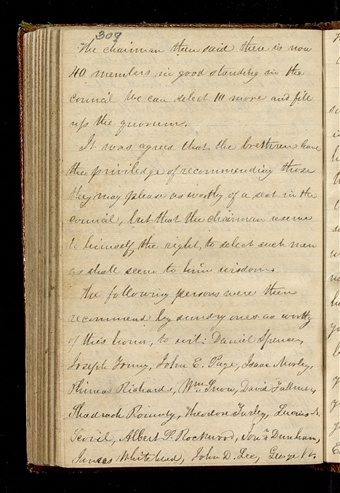 309
The chairman then said there is now
40 members in good standing in the
council we can select 10 more and fill
up the quorum.
It was agreed that the brethren have
the priviledge of recommending those
they may please as worthy of a seat in the
council, but that the chairman reserve
to himself, the right, to select such men
as shall seem to him wisdom.
The following persons were then
recommend by sundry ones as worthy
of this honor, to wit: Daniel Spencer,
Joseph Young, John E. Page, Isaac Morley,
Phineas Richards, Wm. Snow, David Fullmer,
Shadrach Roundy, Theodore Turley, Lucius N.
Scovil, Albert P. Rockwood, Jon.a Dunham,
Whitehead, John D. Lee, George